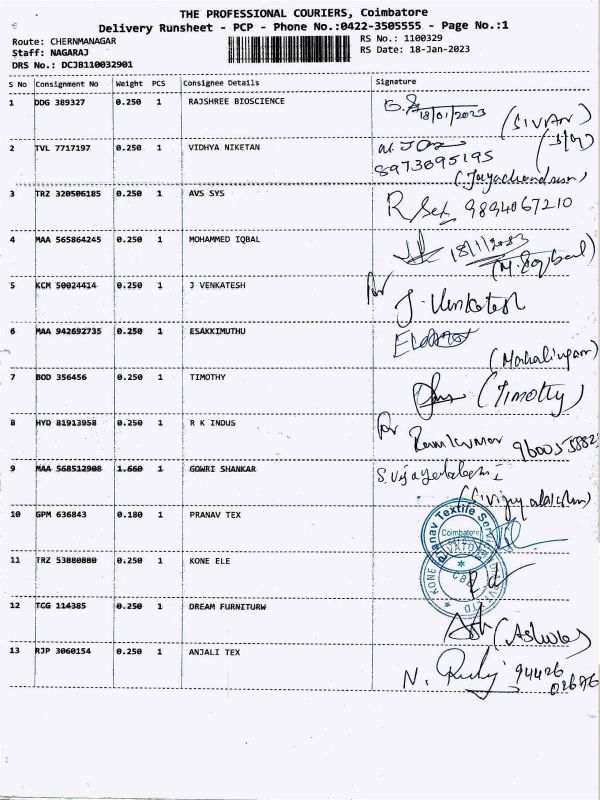 THE PROFESSIONAL COURIERS, Coimbatore
Delivery Runsheet - PCP - Phone No.:0422-3505555 - Page No.:1
Route: CHERNMANAGAR RS No.: 1100329
Staff: NAGARAJ RS Date: 18-Jan-2023
DRS No.: DCJB110032901
S No Consignment No Weight PCS Consignee Details Signature
1 DDG 389327 0.250 1 RAJSHREE BIOSCIENCE 18/01/2023 (SIVAN)
2 TVL 7717197 0.250 1 VIDHYA NIKETAN
8973095195
(Jayachandran)
3 TRZ 320506185 0.250 1 AVS SYS 9894067210
4 MAA 565864245 0.250 1 MOHAMMED IQBAL 18/1/2023
(M. Iqbal)
5 KCM 50024414 0.250 1 J VENKATESH for J. Venkatesh
6 MAA 942692735 0.250 1 ESAKKIMUTHU
(Mahalingam)
7 BOD 356456 0.250 1 TIMOTHY (Timothy)
8 HYD 81913958 0.250 1 R K INDUS for Ramkumar
9 MAA 568512908 1.660 1 GOWRI SHANKAR S. Vijayalakshmi
(S. Vijayalakshmi)
10 GPM 636843 0.180 1 PRANAV TEX Pranav Textile Coimbatore
11 TRZ 53880880 0.250 1 KONE ELE KONE
12 TCG 114385 0.250 1 DREAM FURNITURW
13 RJP 3060154 0.250 1 ANJALI TEX N. 94426
02676